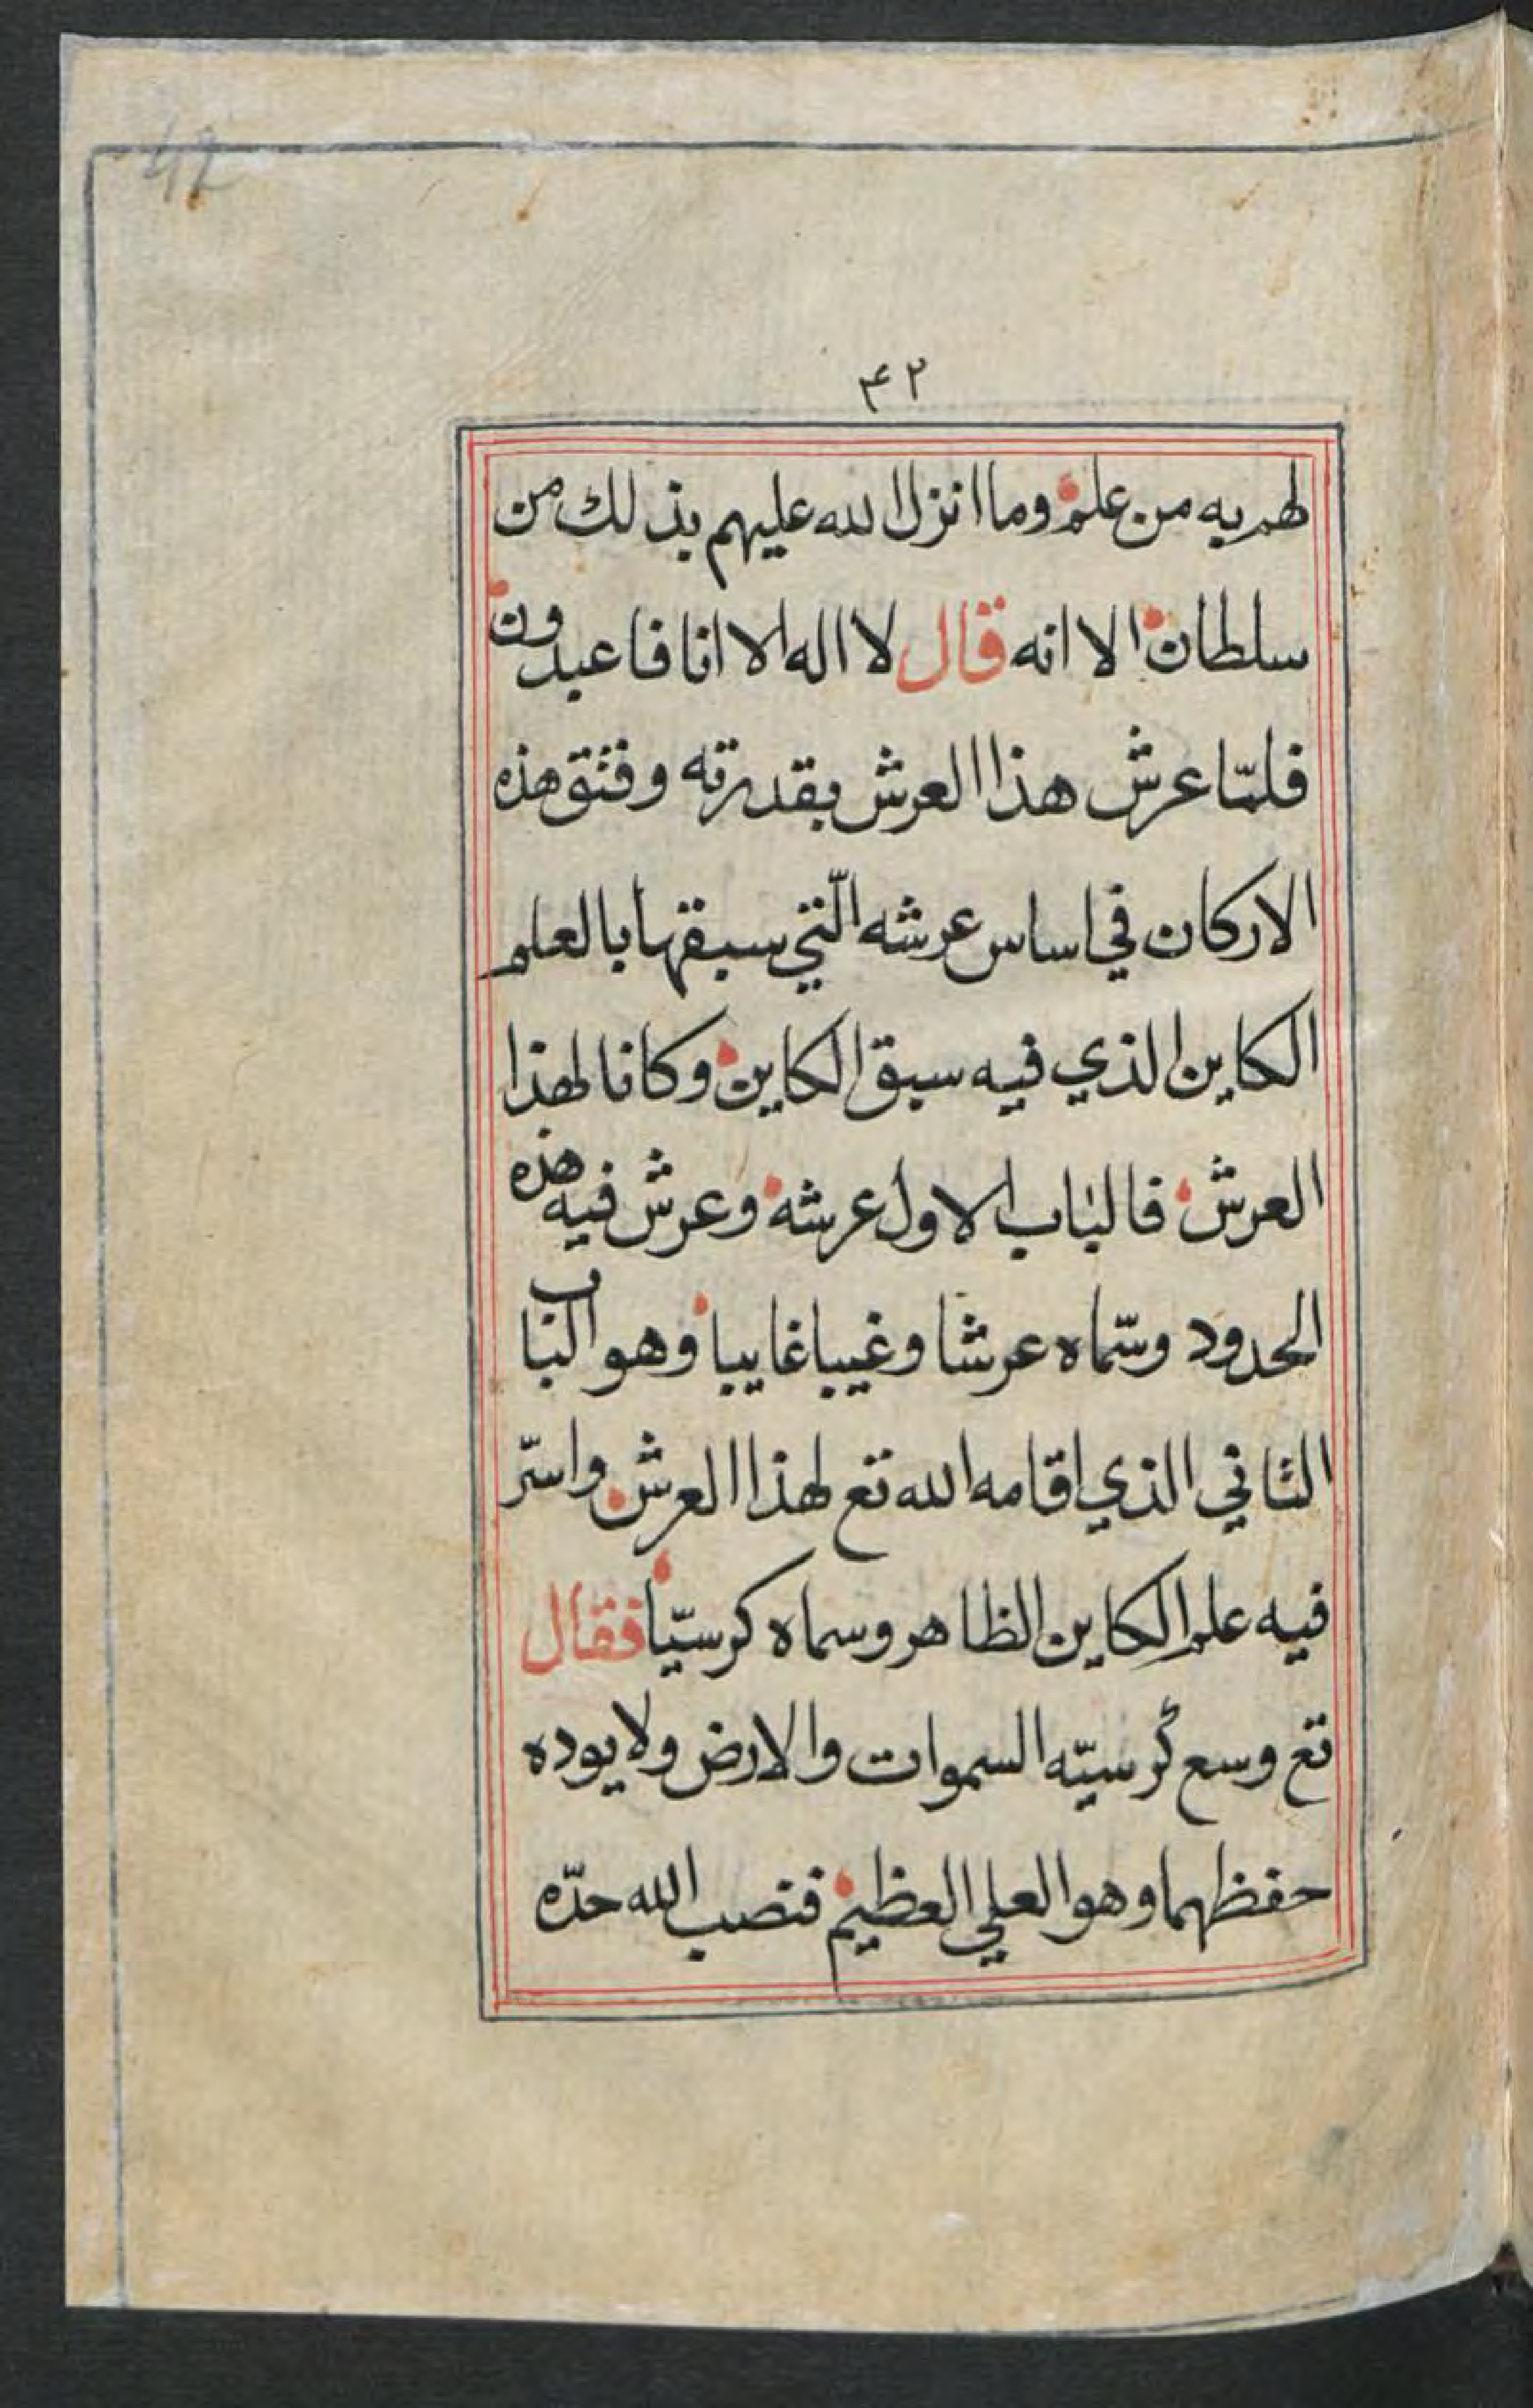 42
۴۲
لهم به من علم وما انزل الله عليهم بذلك من
سلطان الا انه قال لا اله الا انا فاعبدون
فلمّا عرش هذا العرش بقدرته وفتق هذه
الاركان في اساس عرشه الّتي سبقها بالعلم
الكاين الذي فيه سبق الكاين وكانا لهذا
العرش فالباب الاول عرشه وعرش فيه هذه
الحدود وسمّاه عرشا وغيبا غايبا وهو الباب
الثاني الذي اقامه الله تع لهذا العرش واسّر
فيه علم الكاين الظاهر وسماه كرسيّا فقال
تع وسع كرسيّه السموات والارض ولا يوده
حفظهما وهو العلي العظيم فنصب الله حدّه